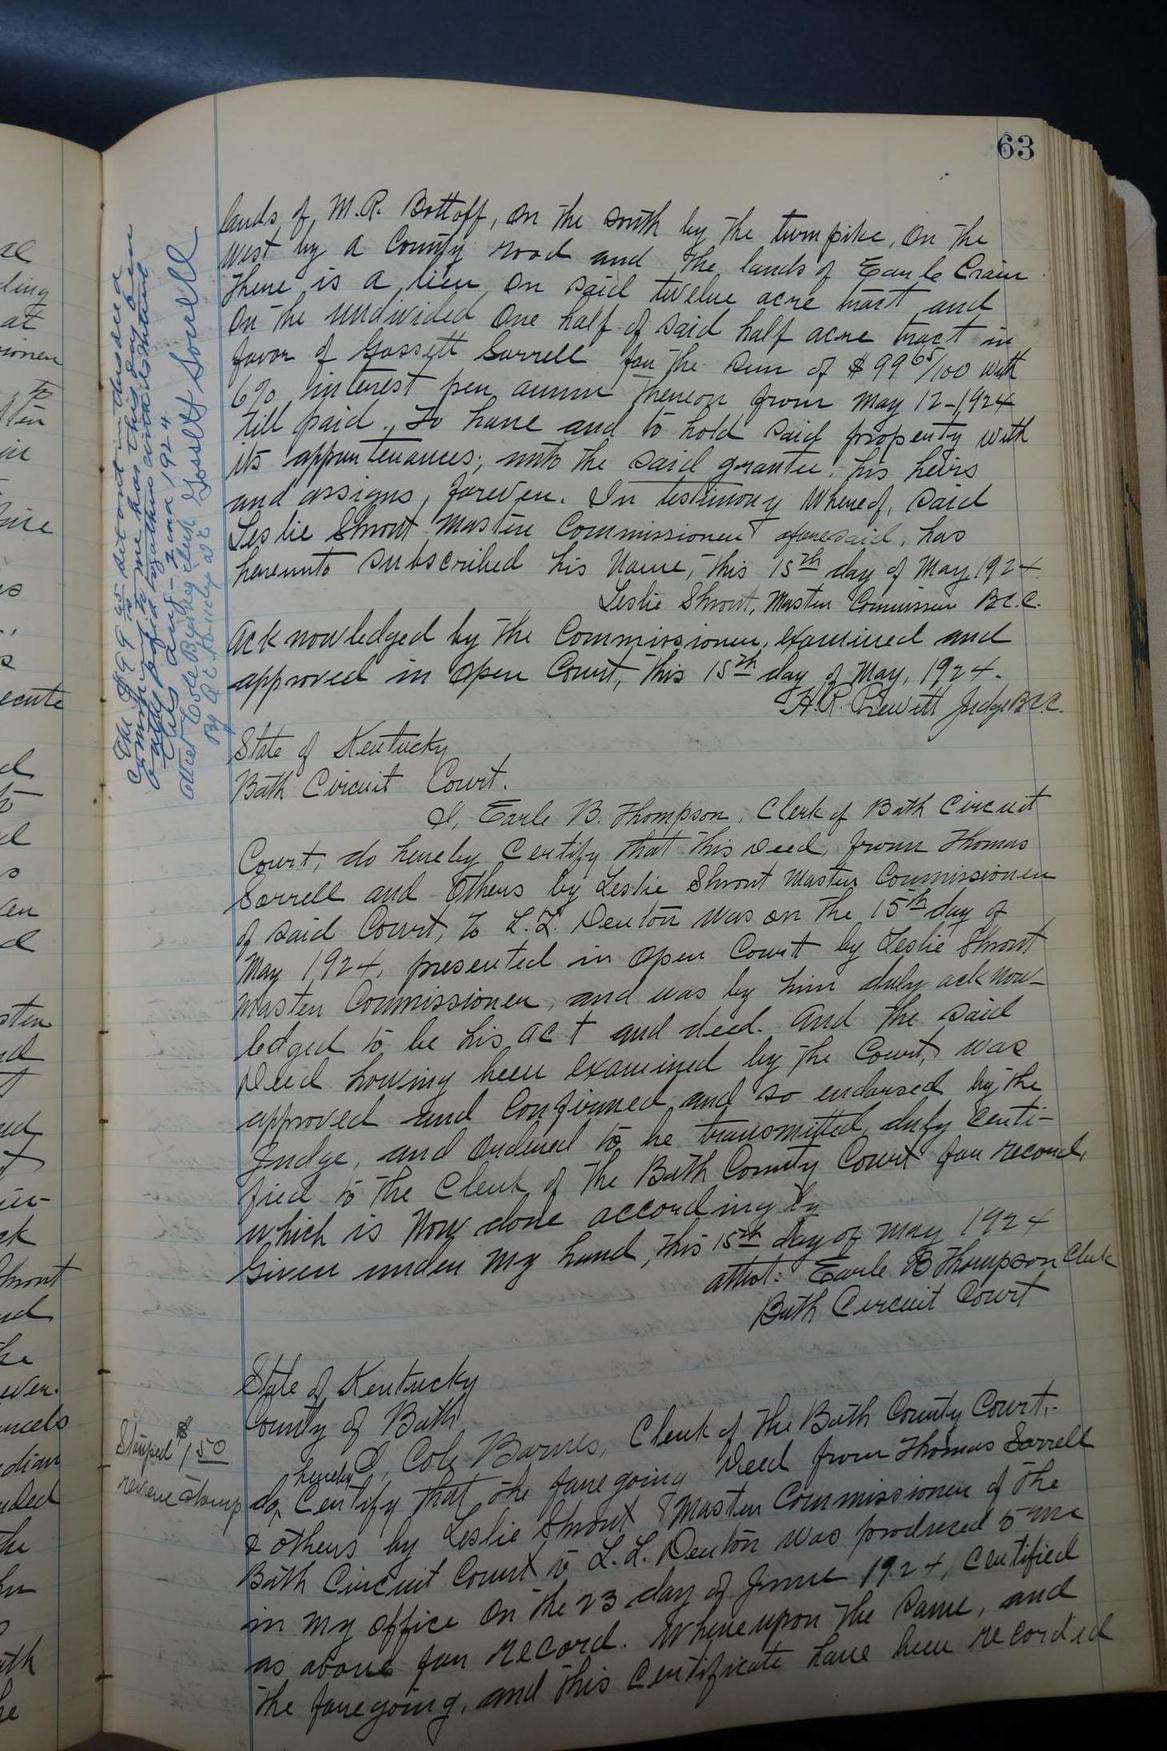 63
lands of, M.R. Bottoff, on the south by the turnpike, on the
West by a County road and the lands of Earle Crain
There is a lien, on said twelve acre tract and
on the undivided one half of said half acre tract in
favor of Gossett Sorrell for the sum of $99 65/100 with
6% interest per annum thereon from May 12-1924
till paid. To have and to hold said property with
its appurtenances, unto the said grantee, his heirs
and assigns, forever. In testimony Whereof, said
Leslie Shrout Master Commissioner aforesaid, has
hereunto subscribed his Name, this 15th day of May 1924
Leslie Shrout, Master Commissioner B.C.C.
Acknowledged by the Commissioner, examined and
approved in open Court, this 15th day of May, 1924.
H.R. Prewitt Judge B.C.C.
State of Kentucky
Bath Circuit Court.
I, Earle B. Thompson, Clerk of Bath Circuit
Court, do hereby Certify that this Deed, from Thomas
Sorrell and Others by Leslie Shrout Master Commissioner
of said Court, to L.L. Denton was on the 15th day of
May 1924, presented in open Court by Leslie Shrout
Master Commissioner, and was by him duly acknow-
ledged to be his act and deed. And the said
Deed having been examined by the Court, was
approved and confirmed and so endorsed by the
Judge, and Ordered to be transmitted, duly Certi-
fied to the Clerk of the Bath County Court for record,
which is Now done accordingly
Given under my hand, this 15th day of May 1924
attest: Earle B Thompson Clerk
Bath Circuit Court
State of Kentucky
County of Bath
I, Cole Barnes, Clerk of the Bath County Court,
do, hereby Certify that the foregoing Deed from Thomas Sorrell
& others by Leslie Shrout Master Commissioner of the
Bath Circuit Court to L.L. Denton was produced to me
in my office on the 23 day of June 1924, certified
as above for record. Whereupon the same, and
the foregoing, and this Certificate have been recorded
The $99 65 set out in this deed
coming to me has this day been
fully paid together with its interest
this Aug- 2nd 1924
Gossett Sorrell
Stamped $1.50
revenue stamp